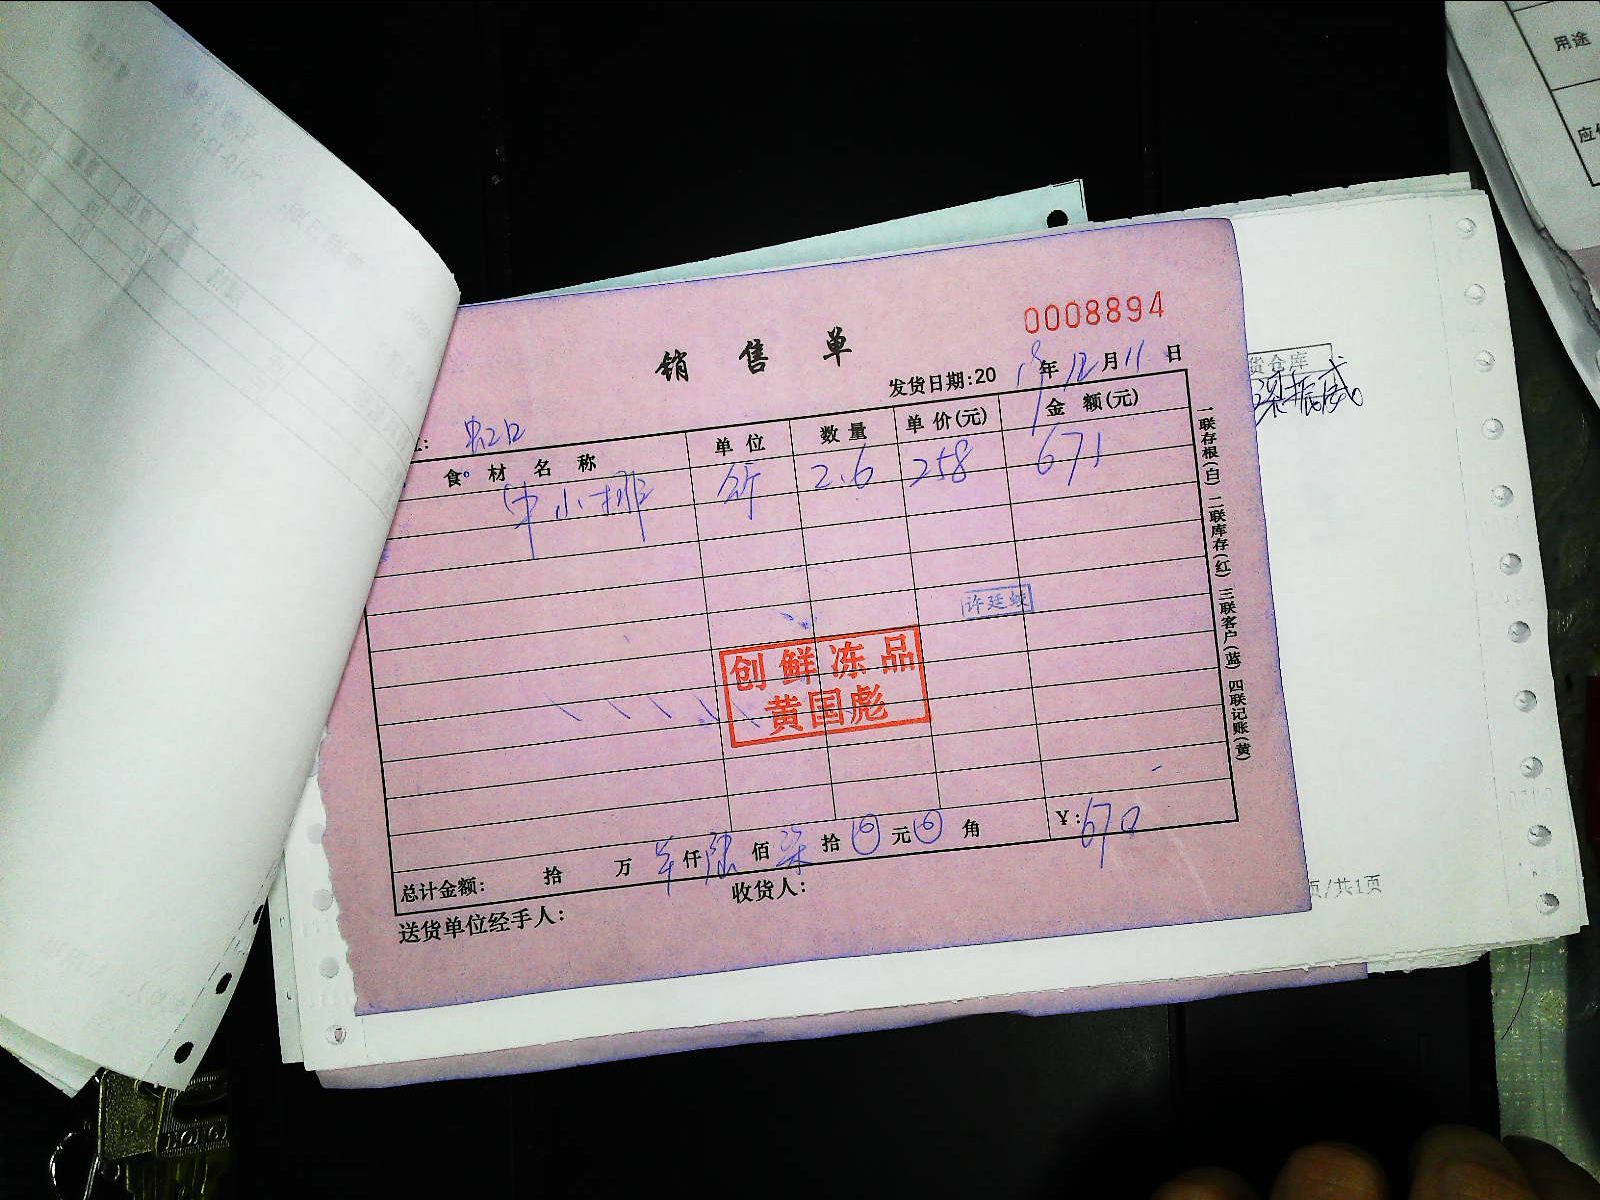 用途
0008894
销售单
发货日期:20 19年12月11日
食材名称 单位 数量 单价(元) 金额(元)
牛小排 斤 2.6 258 671
许廷
创鲜冻品
黄国彪
总计金额: 拾 万 仟陆佰柒拾 元 角 ¥:670
送货单位经手人: 收货人:
一联存根(白) 二联库存(红) 三联客户(蓝) 四联记账(黄)
货仓库
页/共1页